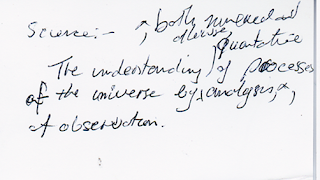 Science:- ^, both numerical and
diverse, quantative
The understanding of processes
of the universe by analysis, ^,
of observation.